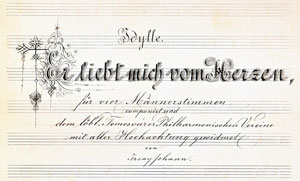 Idylle.
Er liebt mich vom Herzen,
für vier Männerstimmen
componirt und
dem löbl. Temesvarer Philharmonischen Vereine
mit aller Hochachtung gewidmet
von
Johann.